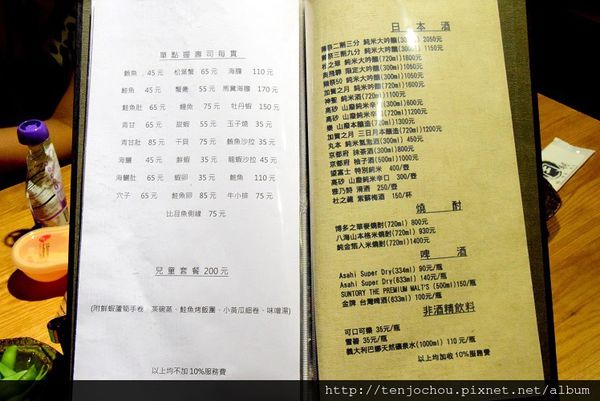 單點握壽司每貫
鮪魚 45元 松葉蟹 65元 海膽 110元
鮭魚 45元 蟹膏 55元 馬糞海膽 170元
鮭魚肚 65元 鯛魚 75元 牡丹蝦 150元
青甘 65元 甜蝦 55元 玉子燒 35元
青甘肚 85元 干貝 75元 鮪魚沙拉 35元
海鱺 45元 鮮蝦 35元 龍蝦沙拉 45元
海鱺肚 65元 蝦卵 35元 鮑魚 110元
穴子 65元 鮭魚卵 85元 牛小排 75元
比目魚側緣 75元
兒童套餐 200元
(附鮮蝦蘆筍手卷、茶碗蒸、鮭魚烤飯團、小黃瓜細卷、味噌湯)
以上均不加 10%服務費
日本酒
獺祭二割三分 純米大吟釀(300ml) 2050元
獺祭三割九分 純米大吟釀(300ml) 1150元
純米大吟釀(720ml)1800元
限定大吟釀(300ml)1050元
獺祭50 純米大吟釀(300ml)
加賀之月 純米大吟釀(720ml)
純米酒(720ml)1100元
高砂 山廢純米辛口(300ml)
高砂 山廢純米辛口(720ml)
山廢本釀造(720ml)1300元
加賀之月 三日月本釀造(720ml)1200元
丸本 純米氣泡酒(300ml)
京都府 抹茶酒(300ml)800元
京都府 柚子酒(500ml)
望富士 特別純米 400/壺
高砂 山廢純米辛口 300/壺
雅乃詩 清酒 250/壺
杜之藏 紫蘇梅酒 150/杯
燒酎
博多之華麥燒酎(720ml) 800元
八海山本格米燒酎(720ml) 930元
純金箔入米燒酎(720ml)1400元
啤酒
Asahi Super Dry(334ml) 90元/瓶
Asahi Super Dry(633ml) 140元/瓶
SUNTORY THE PREMIUM MALT'S (500ml)150/瓶
金牌 台灣啤酒(633ml) 100元/瓶
非酒精飲料
可口可樂 35元/瓶
雪碧 35元/瓶
義大利巴娜天然礦泉水(1000ml) 110元/瓶
以上均加收 10%服務費
http://tenjochou.pixnet.net/album